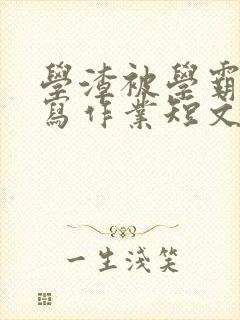 學渣被學霸
寫作業短文
一生淺笑